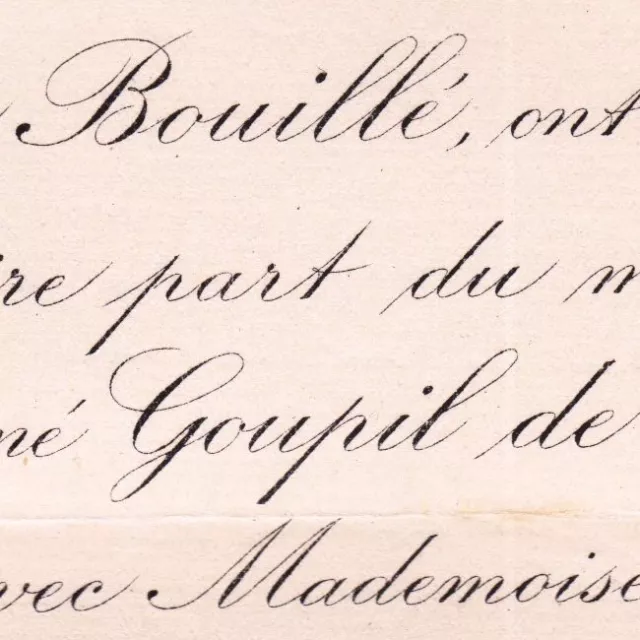 Bouillé, ont
ire part du m
né Goupil de
vec Mademoise